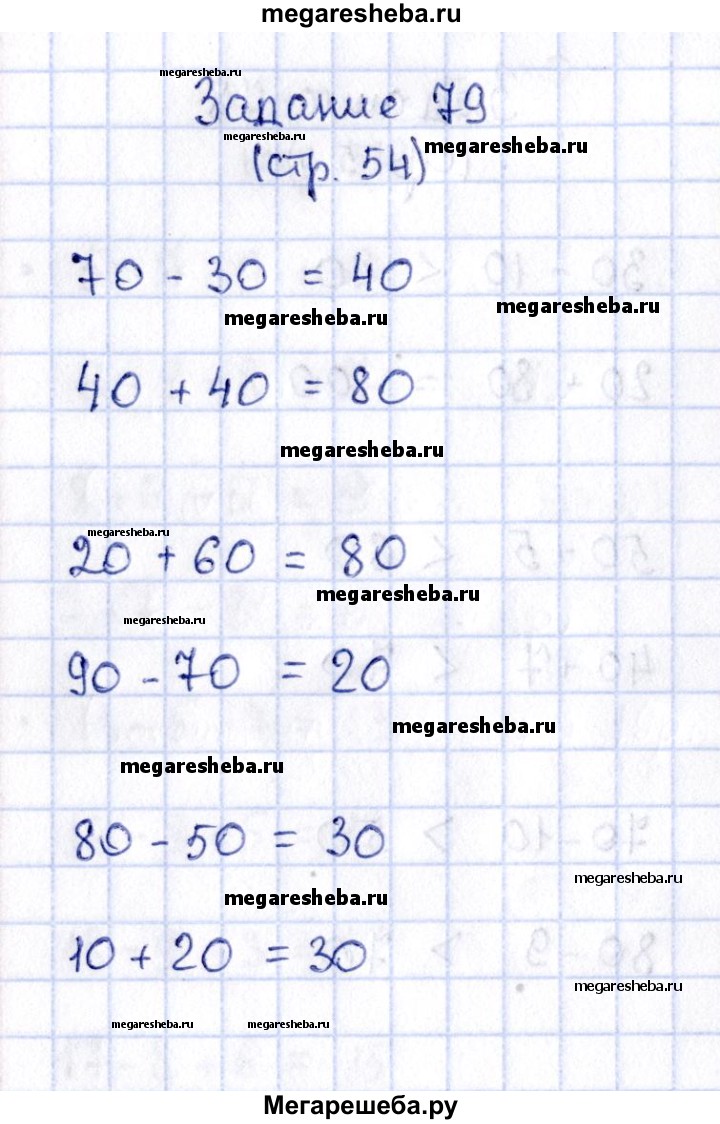 megaresheba.ru
megaresheba.ru
Задание 79
megaresheba.ru
megaresheba.ru
(стр. 54)
70 - 30 = 40
megaresheba.ru
megaresheba.ru
40 + 40 = 80
megaresheba.ru
megaresheba.ru
20 + 60 = 80
megaresheba.ru
megaresheba.ru
90 - 70 = 20
megaresheba.ru
megaresheba.ru
80 - 50 = 30
megaresheba.ru
megaresheba.ru
10 + 20 = 30
megaresheba.ru
megaresheba.ru
megaresheba.ru
Мегарешеба.ру